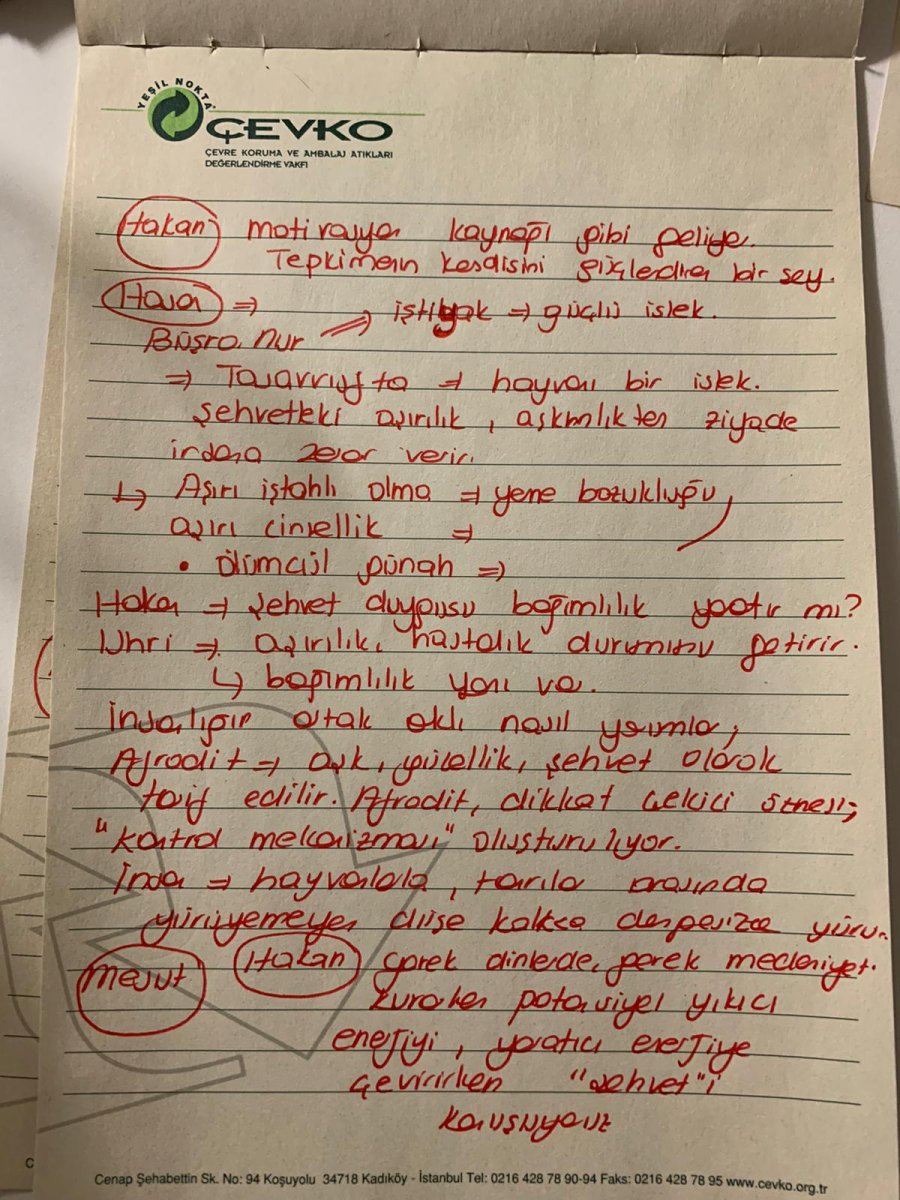 YEŞİL NOKTA
ÇEVKO
ÇEVRE KORUMA VE AMBALAJ ATIKLARI
DEĞERLENDİRME VAKFI
Hakan motivasyon kaynağı gibi geliyor.
Tepkimenin kendisini güçlendiren bir şey.
Hasan ⇒ iştiyak ⇒ güçlü istek.
Büşra Nur ⇒
⇒ Tasavvufta ⇒ hayvani bir istek.
şehvetteki aşırılık, aşkınlıkten ziyade
insana zarar verir.
↳ Aşırı iştahlı olma ⇒ yeme bozukluğu
aşırı cinsellik ⇒
• ölümcül günah ⇒
Hakan ⇒ şehvet duygusu bağımlılık yapatır mı?
⇒ aşırılık, hastalık durumunu getirir.
↳ bağımlılık yanı var.
İnsanlığın ortak aklı nasıl yorumlar;
Afrodit ⇒ aşk, güzellik, şehvet olarak
tarif edilir. Afrodit, dikkat çekici
"kontrol mekanizması" oluşturuluyor.
İnsan ⇒ hayvanlarla, tanrılar arasında
yürüyemeyen düşe kalka dengesizce yürür.
Mesut Hakan gerek dinlerde, gerek medeniyet.
kurarken potansiyel yıkıcı
enerjiyi, yaratıcı enerjiye
çevirirken "şehvet"i
konuşuyoruz
Cenap Şehabettin Sk. No: 94 Koşuyolu 34718 Kadıköy - İstanbul Tel: 0216 428 78 90-94 Faks: 0216 428 78 95 www.cevko.org.tr